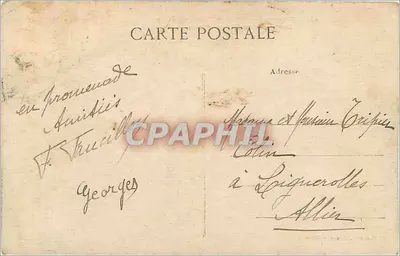 CARTE POSTALE
Adresse
en promenade
Amitiés
Georges
Madame et Monsieur Tripier
Colin
à Lignerolles
Allier
CPAPHIL